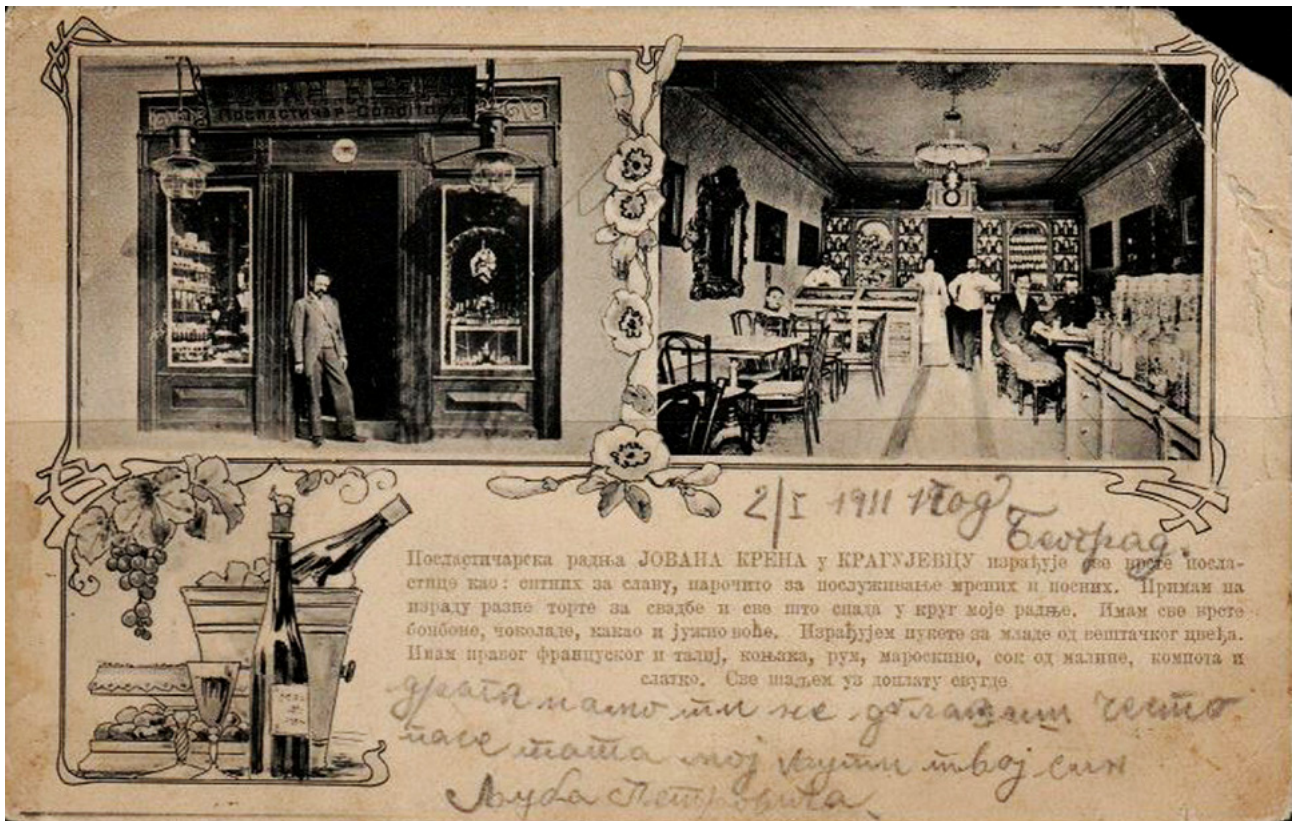 Посластичар-Бонбонџ
2/I 1911 год
Београд.
Посластичарска радња ЈОВАНА КРЕНА у КРАГУЈЕВЦУ израђује све врсте посла-
стице као: ситних за славу, нарочито за послуживање мрсних и посних. Примам на
израду разне торте за свадбе и све што спада у круг моје радње. Имам све врсте
бонбоне, чоколаде, какао и јужно воће. Израђујем пукете за младе од вештачког цвећа.
Имам правог француског и талиј, коњака, рум, мароскино, сок од малине, компота и
слатко. Све шаљем уз доплату свугде
драга мамо ти не долазиш често
тата мој твој син
Љуба Петровића